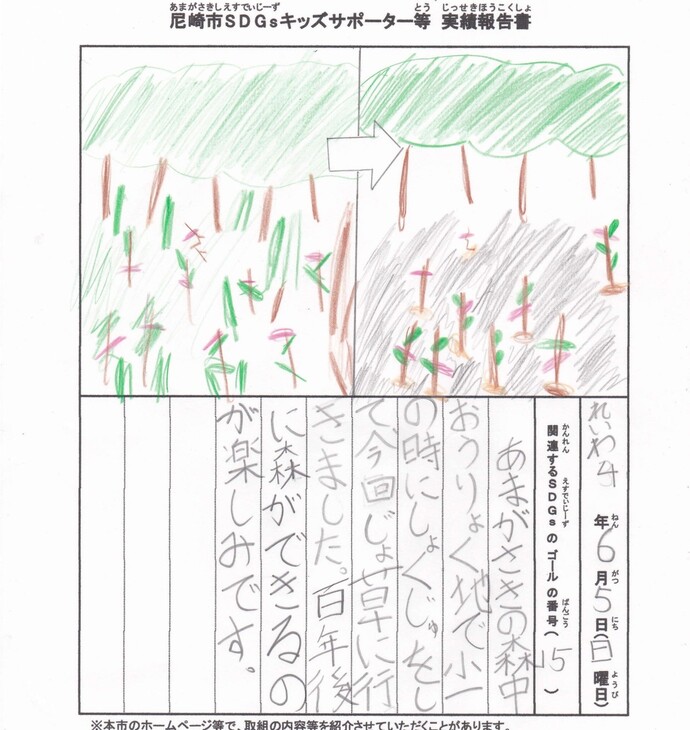 あまがさきしえすでぃじーず とう じっせきほうこくしょ
尼崎市SDGsキッズサポーター等 実績報告書
れいわ4年6月5日(日曜日)
ねん がつ にち ようび
関連するSDGsのゴールの番号(15)
かんれん えすでぃじーず ばんごう
あまがさきの森中
おうりょく地で小一
の時にしょくじゅをし
て今回じょ草に行
きました。百年後
に森ができるの
が楽しみです。
※本市のホームページ等で、取組の内容等を紹介させていただくことがあります。